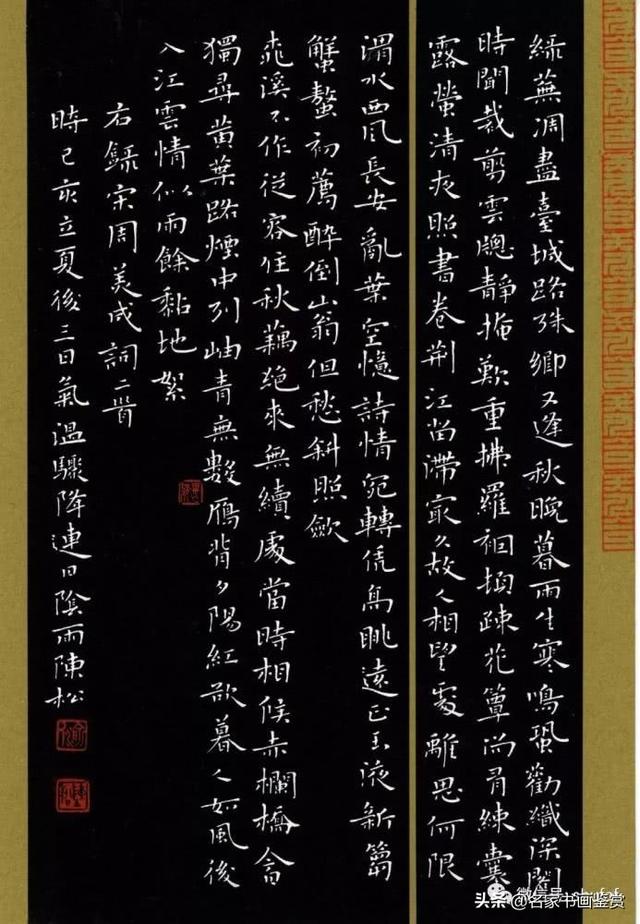 綠蕪凋盡臺城路殊鄉又逢秋晚暮雨生寒鳴蛩勸織深閣
時聞裁剪雲牕靜掩歎重拂羅裀頓疎花簟尚有練囊
露螢清夜照書卷荊江留滯最久故人相望處離思何限
渭水西風長安亂葉空憶詩情宛轉凭高眺遠正玉液新篘
蟹螯初薦醉倒山翁但愁斜照斂
桃溪不作從容住秋藕絕來無續處當時相候赤欄橋今日
獨尋黃葉路煙中列岫青無數鴈背夕陽紅欲暮人如風後
入江雲情似雨餘黏地絮
右錄宋周美成詞二首
時己亥立夏後三日氣溫驟降連日陰雨陳松
微信号
头条@名家书画鉴赏